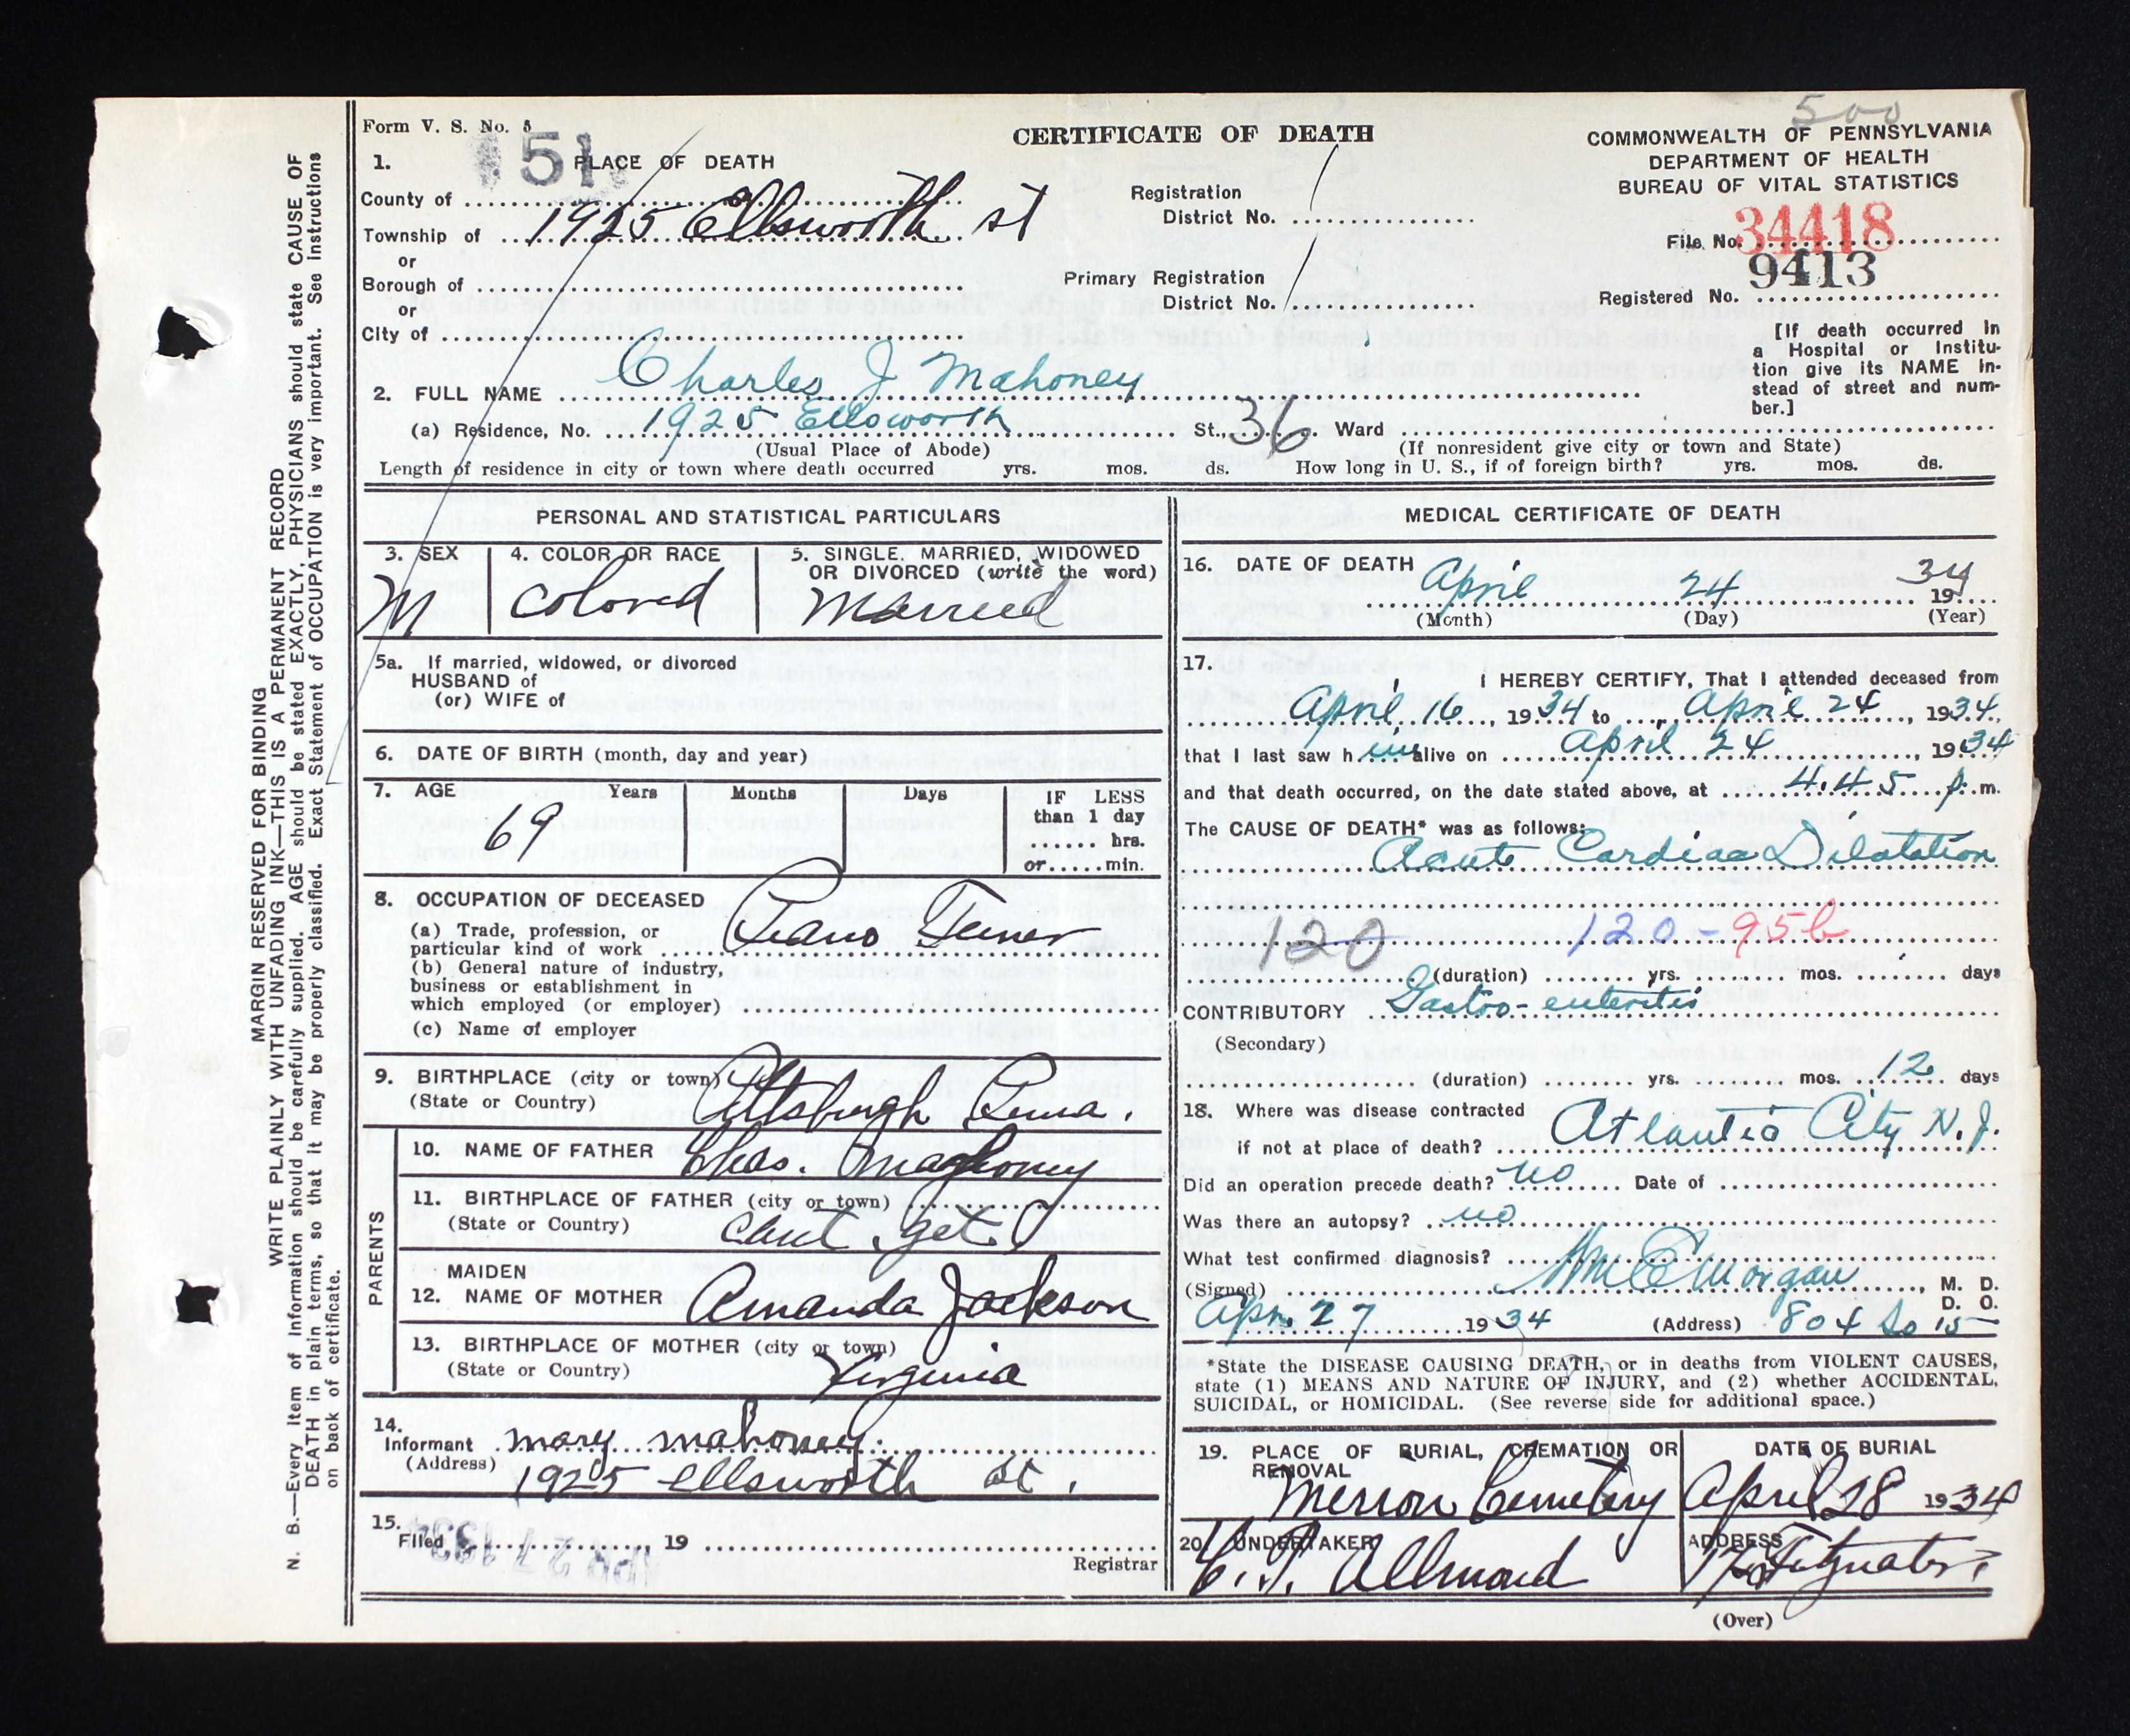 500
Form V. S. No. 5
CERTIFICATE OF DEATH
COMMONWEALTH OF PENNSYLVANIA
DEPARTMENT OF HEALTH
BUREAU OF VITAL STATISTICS
151
1. PLACE OF DEATH
County of
Township of 1925 Ellsworth st
or
Borough of
or
City of
Registration
District No.
Primary Registration
District No.
File No. 34418
9413
Registered No.
[If death occurred in
a Hospital or Institu-
tion give its NAME in-
stead of street and num-
ber.]
2. FULL NAME Charles J Mahoney
(a) Residence, No. 1925 Ellsworth St., 36 Ward
(Usual Place of Abode) (If nonresident give city or town and State)
Length of residence in city or town where death occurred yrs. mos. ds. How long in U. S., if of foreign birth? yrs. mos. ds.
PERSONAL AND STATISTICAL PARTICULARS
3. SEX 4. COLOR OR RACE 5. SINGLE, MARRIED, WIDOWED
OR DIVORCED (write the word)
M colored Married
5a. If married, widowed, or divorced
HUSBAND of
(or) WIFE of
6. DATE OF BIRTH (month, day and year)
7. AGE Years Months Days IF LESS
than 1 day
69
...... hrs.
or.....min.
8. OCCUPATION OF DECEASED
(a) Trade, profession, or
particular kind of work Piano Tuner
(b) General nature of industry,
business or establishment in
which employed (or employer)
(c) Name of employer
9. BIRTHPLACE (city or town) Pittsburgh Penna.
(State or Country)
PARENTS
10. NAME OF FATHER Chas. Mahoney
11. BIRTHPLACE OF FATHER (city or town)
(State or Country) cant get
MAIDEN
12. NAME OF MOTHER Amanda Jackson
13. BIRTHPLACE OF MOTHER (city or town)
(State or Country) Virginia
14.
Informant mary mahoney.
(Address) 1925 Ellsworth st.
15.
Filed APR 27 1934, 19
Registrar
MEDICAL CERTIFICATE OF DEATH
16. DATE OF DEATH April 24 1934
(Month) (Day) (Year)
17.
I HEREBY CERTIFY, That I attended deceased from
April 16, 1934 to April 24, 1934,
that I last saw h im alive on April 24, 1934
and that death occurred, on the date stated above, at 4.45 p.m.
The CAUSE OF DEATH* was as follows:
Acute Cardiac Dilatation
120 120-95b
(duration) yrs. mos. days
CONTRIBUTORY Gastro-enteritis
(Secondary)
(duration) yrs. mos. 12 days
18. Where was disease contracted
if not at place of death? Atlantic City N.J.
Did an operation precede death? no Date of
Was there an autopsy? no
What test confirmed diagnosis?
(Signed) Wm E Morgan, M. D.
D. O.
Apr. 27 1934 (Address) 804 So 15
*State the DISEASE CAUSING DEATH, or in deaths from VIOLENT CAUSES,
state (1) MEANS AND NATURE OF INJURY, and (2) whether ACCIDENTAL,
SUICIDAL, or HOMICIDAL. (See reverse side for additional space.)
19. PLACE OF BURIAL, CREMATION OR
REMOVAL
Merion Cemetery
DATE OF BURIAL
April 28 1934
20. UNDERTAKER
Allmond
ADDRESS
(Over)
MARGIN RESERVED FOR BINDING
WRITE PLAINLY WITH UNFADING INK—THIS IS A PERMANENT RECORD
N. B.—Every item of information should be carefully supplied. AGE should be stated EXACTLY, PHYSICIANS should state CAUSE OF
DEATH in plain terms, so that it may be properly classified. Exact Statement of OCCUPATION is very important. See instructions
on back of certificate.